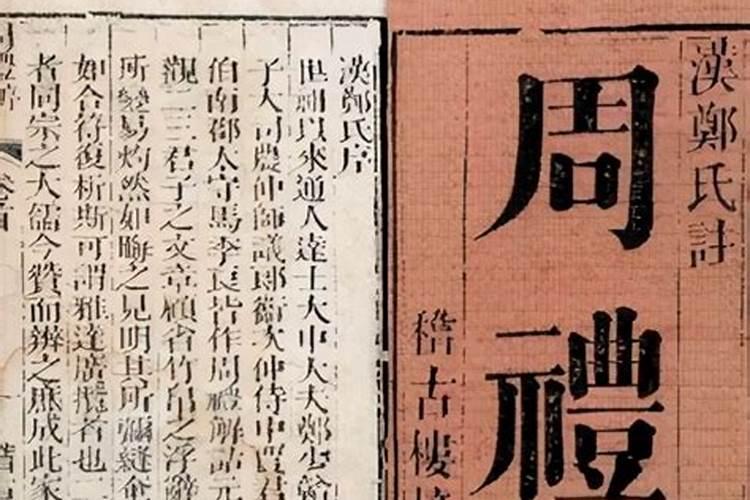 漢鄭氏註
周禮
稽古樓
漢鄭氏序
世祖以來通人達士大中大夫鄭少贛
子大司農仲師議郎衛次仲侍中賈君
伯南郡太守馬季長皆作周禮解詁
觀二三君子之文章顧省竹帛之浮辭
所變易灼然如晦之見明其所彌縫
如合符復析斯可謂雅達廣攬者也
者同宗之大儒今贊而辨之庶成此家